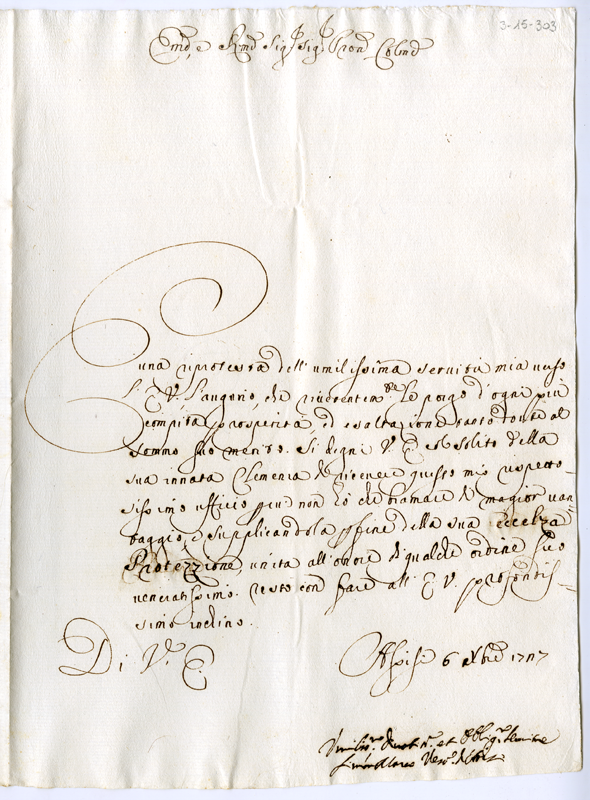 3-15-303
Em.o e Rmo Sig.r Sig.r Pron Colmo
È una riprotesta dell' umilissima servitù mia verso
l' E V, l'augurio, che riverentem.te Le porgo d'ogni più
compita prosperità, ed esaltazione tanto dovute al
sommo suo merito. Si degni V. E al solito della
sua innata Clemenza di ricevere questo mio rispetto-
sissimo ufficio, che bramare di magior van
taggio, e supplicandola per fine della sua eccelza
Protezzione, unita all' onore di qualche ordine suo
veneratissimo resto con fare all' E V. profondis-
simo inclino.
Di V. E.
Assisi 6 Xbre 1707
Umilis.mo et Obblig.mo